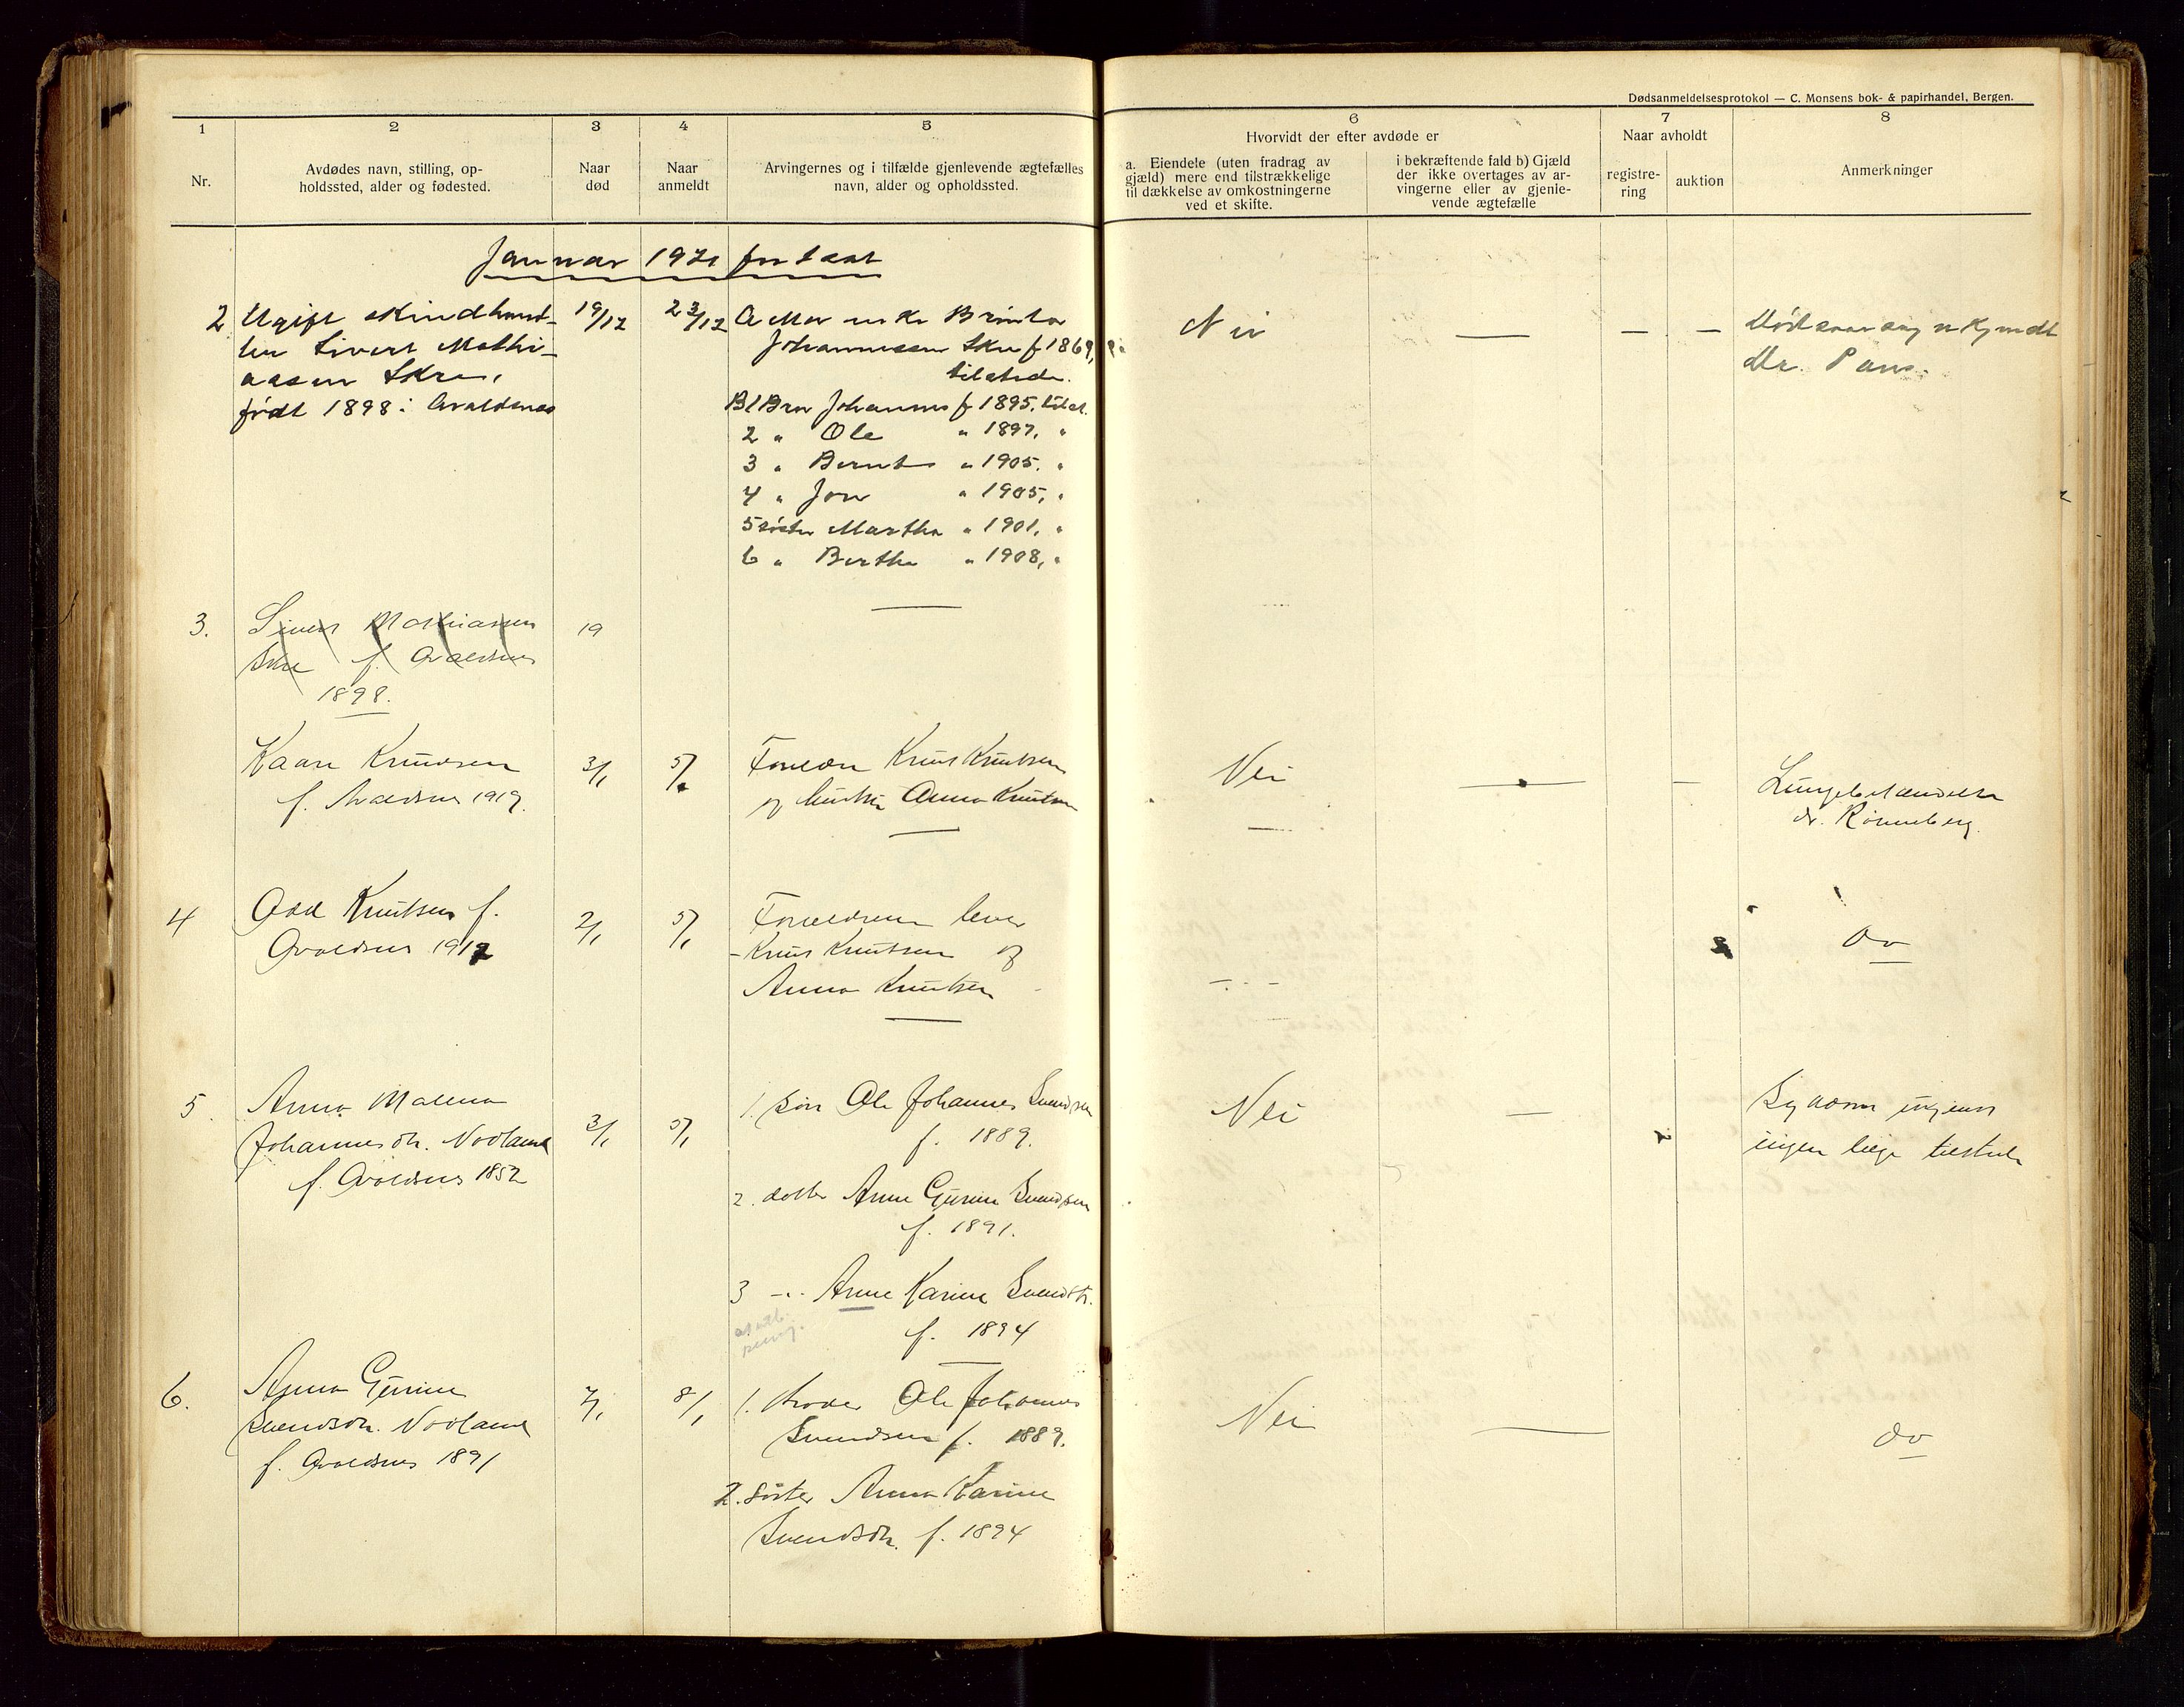 Dødsanmeldelsesprotokol — C. Monsens bok- & papirhandel, Bergen.
1 2 3 4 5 6 7 8
Nr.
Avdødes navn, stilling, op-
holdssted, alder og fødested.
Naar
død
Naar
anmeldt
Arvingernes og i tilfælde gjenlevende ægtefælles
navn, alder og opholdssted.
Hvorvidt der efter avdøde er
a. Eiendele (uten fradrag av
gjæld) mere end tilstrækkelige
til dækkelse av omkostningerne
ved et skifte.
i bekræftende fald b) Gjæld
der ikke overtages av ar-
vingerne eller av gjenle-
vende ægtefælle
Naar avholdt
registre-
ring
auktion
Anmerkninger
Januar 1921 fortsat
2 Ugift
Sivert Mathi-
asen Skre,
født 1898 i Avaldsnes
19/12
23/12
A Mor enke
Johannessen Skre f 1869,
tilstede.
B1 Bror Johannes f 1895, tilst.
2 " Ole " 1897, "
3 " Bernt " 1905, "
4 " Jon " 1905, "
5 søster Martha " 1901, "
6 " Bertha " 1908, "
Nei — — —
Dødsaarsag ukjendt
Dr.
3. Sivert Mathiassen
Skre f. Avaldsnes
1898.
19
Kaare Knudsen
f. Avaldsnes 1919.
3/1
5/1
Forældre Knut Knutsen
og hustru Anna Knutsen
Nei — —
Lungebetændelse
dr. Rønneberg.
4 Odd Knutsen f.
Avaldsnes 1917
2/1
5/1
Forældrene lever
Knut Knutsen og
Anna Knutsen
do
5. Anna Malena
Johannesdtr. Nordland
f. Avaldsnes 1852
3/1
5/1
1. søn Ole Johannes Svendsen
f. 1889.
2. datter Anne Gurine Svendsen
f. 1891.
3 -"- Anne Karine Svendsdtr.
f. 1894
Nei —
Sygdom
ingen læge tilstede
6. Anna Gurine
Svendsdtr. Nordland
f. Avaldsnes 1891
7/1
8/1
1. broder Ole Johannes
Svendsen f. 1889.
2. søster Anna Karine
Svendsdtr. f. 1894
Nei —
do